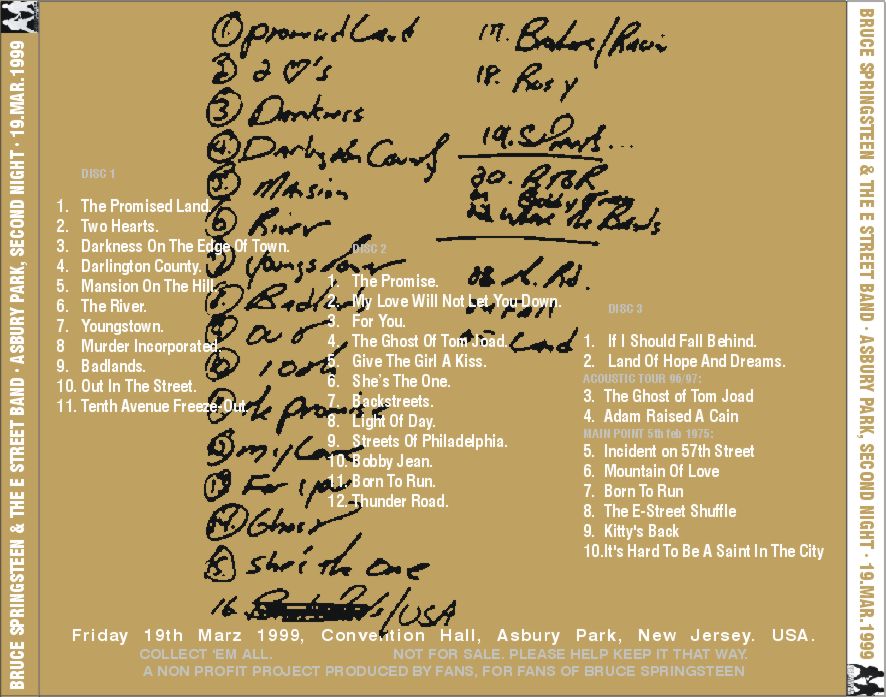 BRUCE SPRINGSTEEN & THE E STREET BAND · ASBURY PARK, SECOND NIGHT · 19.MAR.1999
① promised Land
② 2 ♡'s
③ Darkness
④ Darlington County
⑤ Mansion
⑥ River
⑦ Youngstown
⑧ Badlands
⑨ Out
⑩ 10th
⑪ the promise
⑫ my Love
⑬ For you
⑭ Ghost
⑮ she's the One
16. /USA
17. /
18. Rosy
19. Streets...
20. BTBR
Bobby Jean
Where the Bands
R. Rd.
FALL
Land
DISC 1
1. The Promised Land.
2. Two Hearts.
3. Darkness On The Edge Of Town.
4. Darlington County.
5. Mansion On The Hill.
6. The River.
7. Youngstown.
8 Murder Incorporated.
9. Badlands.
10. Out In The Street.
11. Tenth Avenue Freeze-Out.
DISC 2
1. The Promise.
2. My Love Will Not Let You Down.
3. For You.
4. The Ghost Of Tom Joad.
5. Give The Girl A Kiss.
6. She's The One.
7. Backstreets.
8. Light Of Day.
9. Streets Of Philadelphia.
10. Bobby Jean.
11. Born To Run.
12. Thunder Road.
DISC 3
1. If I Should Fall Behind.
2. Land Of Hope And Dreams.
ACOUSTIC TOUR 96/97:
3. The Ghost of Tom Joad
4. Adam Raised A Cain
MAIN POINT 5th feb 1975:
5. Incident on 57th Street
6. Mountain Of Love
7. Born To Run
8. The E-Street Shuffle
9. Kitty's Back
10.It's Hard To Be A Saint In The City
Friday 19th Marz 1999, Convention Hall, Asbury Park, New Jersey. USA.
COLLECT 'EM ALL. NOT FOR SALE. PLEASE HELP KEEP IT THAT WAY.
A NON PROFIT PROJECT PRODUCED BY FANS, FOR FANS OF BRUCE SPRINGSTEEN
BRUCE SPRINGSTEEN & THE E STREET BAND · ASBURY PARK, SECOND NIGHT · 19.MAR.1999